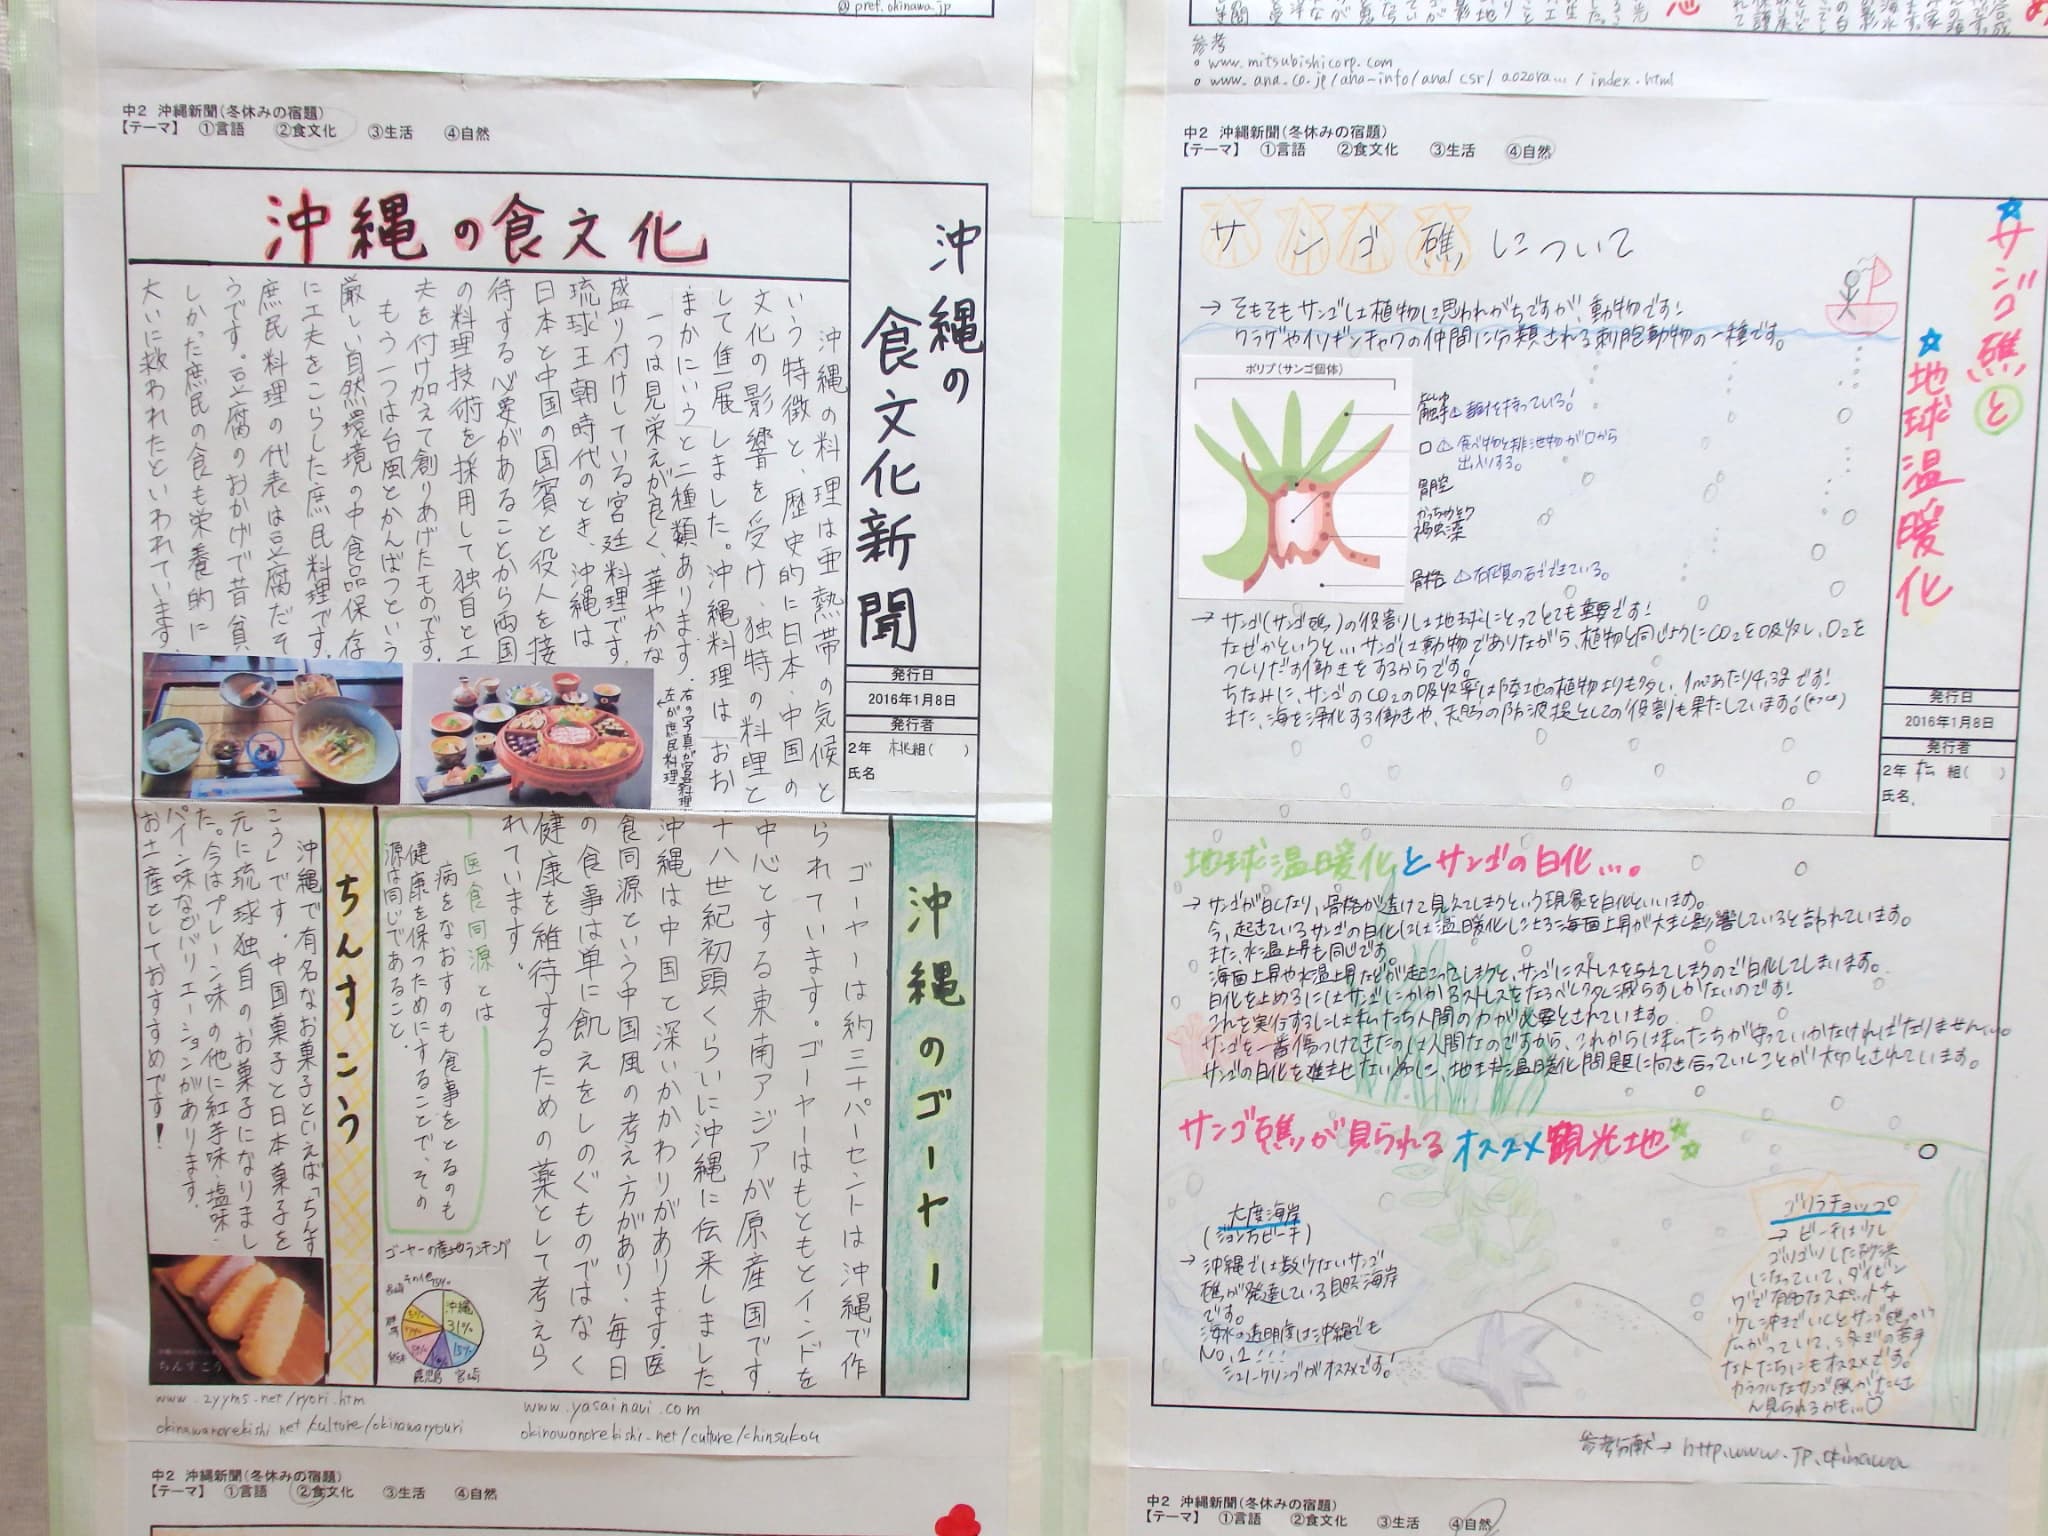 @pref.okinawa.jp
中2 沖縄新聞(冬休みの宿題)
【テーマ】 ①言語 ②食文化 ③生活 ④自然
沖縄の
食文化新聞
発行日
2016年1月8日
発行者
2年 桃組( )
氏名
沖縄の食文化
沖縄の料理は亜熱帯の気候と
いう特徴と、歴史的に日本・中国の
文化の影響を受け、独特の料理と
して進展しました。沖縄料理はおお
まかにいうと二種類あります。
一つは見栄えが良く、華やかな
盛り付けしている宮廷料理です。
琉球王朝時代のとき、沖縄は
日本と中国の国賓と役人を接
待する必要があることから両国
の料理技術を採用して独自と工
夫を付け加えて創りあげたものです。
もう一つは台風とかんばつという
厳しい自然環境の中食品保存
に工夫をこらした庶民料理です。
庶民料理の代表は豆腐だそ
うです。豆腐のおかげで昔貧
しかった庶民の食も栄養的に
大いに救われたといわれています。
右の写真が宮廷料理
左が庶民料理
沖縄のゴーヤー
ゴーヤーは約三十パーセントは沖縄で作
られています。ゴーヤーはもともとインドを
中心とする東南アジアが原産国です。
十八世紀初頭くらいに沖縄に伝来しました。
沖縄は中国と深いかかわりがあります。医
食同源という中国風の考え方があり、毎日
の食事は単に飢えをしのぐものではなく
健康を維持するための薬として考えら
れています。
医食同源とは
病をなおすのも食事をとるのも
健康を保つためにすることで、その
源は同じであること。
ゴーヤーの産地ランキング
その他
沖縄
31%
宮崎
15%
鹿児島
ちんすこう
沖縄で有名なお菓子といえば「ちんす
こう」です。中国菓子と日本菓子を
元に琉球独自のお菓子になりまし
た。今はプレーン味の他に紅芋味・塩味・
パイン味などバリエーションがあります。
お土産としておすすめです!
ちんすこう
www.zyyms.net/ryori.htm
okinawanorekishi.net/kulture/okinawaryouri
www.yasainavi.com
okinawanorekishi.net/culture/chinsukou
中2 沖縄新聞(冬休みの宿題)
【テーマ】 ①言語 ②食文化 ③生活 ④自然
参考
www.mitsubishicorp.com
www.ana.co.jp/ana-info/ana/csr/aozora.../index.html
中2 沖縄新聞(冬休みの宿題)
【テーマ】 ①言語 ②食文化 ③生活 ④自然
サンゴ礁と
地球温暖化
発行日
2016年1月8日
発行者
2年 松 組( )
氏名
サンゴ礁について
→そもそもサンゴは植物に思われがちですが、動物です!
クラゲやイソギンチャクの仲間に分類される刺胞動物の一種です。
ポリプ(サンゴ個体)
触手
口 食べ物と排泄物が口から
出入りする。
胃腔
かっちゅうそう
褐虫藻
骨格 石灰質の石でできている。
→サンゴ(サンゴ礁)の役割は地球にとってとても重要です!
なぜかというと…サンゴは動物でありながら、植物と同じようにCO2を吸収し、O2を
つくりだす働きをするからです!
ちなみに、サンゴのCO2の吸収率は陸地の植物よりも多い、1m²あたり4.3gです!
また、海を浄化する働きや、天然の防波堤としての役割も果たしています!
地球温暖化とサンゴの白化…。
→サンゴが白くなり、骨格が透けて見えてしまうという現象を白化といいます。
今、起きているサンゴの白化には温暖化による海面上昇が大きく影響していると言われています。
また、水温上昇も同じです。
海面上昇や水温上昇などが起こってしまうと、サンゴにストレスを与えてしまうので白化してしまいます。
白化を止めるにはサンゴにかかるストレスをなるべく減らすしかないのです!
これを実行するには私たち人間の力が必要とされています。
サンゴを一番傷つけてきたのは人間なのですから、これからは私たちが守っていかなければなりません…。
サンゴの白化を進ませない為に、地球温暖化問題に向き合っていくことが大切とされています。
サンゴ礁が見られるオススメ観光地
大度海岸
(ジョン万ビーチ)
→沖縄では数少ないサンゴ
礁が発達している自然海岸
です。
海水の透明度は沖縄でも
NO.1!!!
シュノーケリングがオススメです!
ゴリラチョップ
→ビーチは少し
ゴツゴツした砂浜
になっていて、ダイビン
グで有名なスポット
少し沖まで
いくとサンゴ礁が
広がっていて、泳ぎの苦手
な人たちにもオススメです!
カラフルなサンゴ礁がたくさ
ん見られるかも…♡
参考文献→http.www.jp.okinawa
中2 沖縄新聞(冬休みの宿題)
【テーマ】 ①言語 ②食文化 ③生活 ④自然